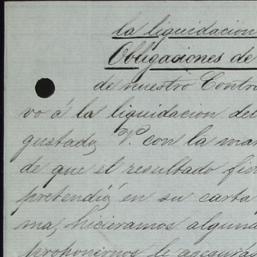 la liquidacion
Obligaciones de
de nuestro Contr
vo á la liquidacion del
gustado, V. con la ma
de que el resultado fin
pretendió en su carta
mas, hicieramos alguna
proponernos le asegurás